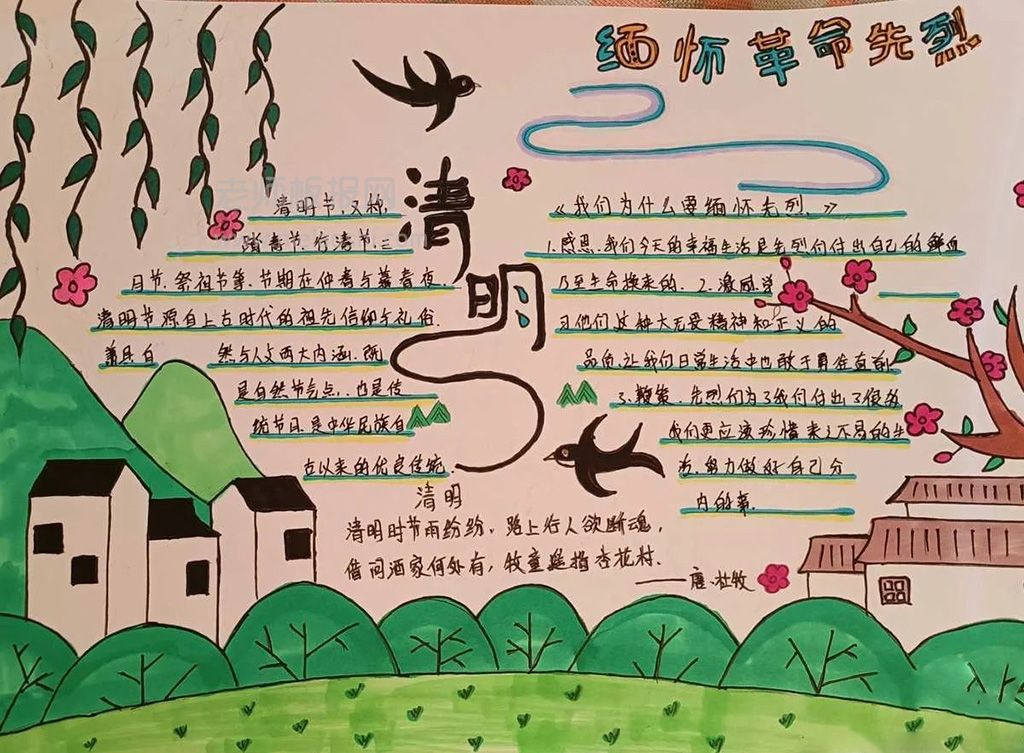 缅怀革命先烈
清明
老师板报网
清明节,又称
踏青节、行清节、三
月节、祭祖节等、节期在仲春与暮春夜.
清明节源自上古时代的祖先信仰与礼俗.
兼具自 然与人文两大内涵,既
是自然节气点,也是传
统节日,是中华民族自
古以来的优良传统.
《我们为什么要缅怀先烈.》
1.感恩.我们今天的幸福生活是先烈们付出自己的鲜血
乃至生命换来的. 2.激励学
习他们这种大无爱精神和正义的
品质,让我们日常生活中也敢于勇往直前
3.鞭策.先烈们为了我们付出了很多
我们更应该珍惜来之不易的生
活.努力做好自己分
内的事.
清明
清明时节雨纷纷,路上行人欲断魂,
借问酒家何处有,牧童遥指杏花村.
——唐·杜牧